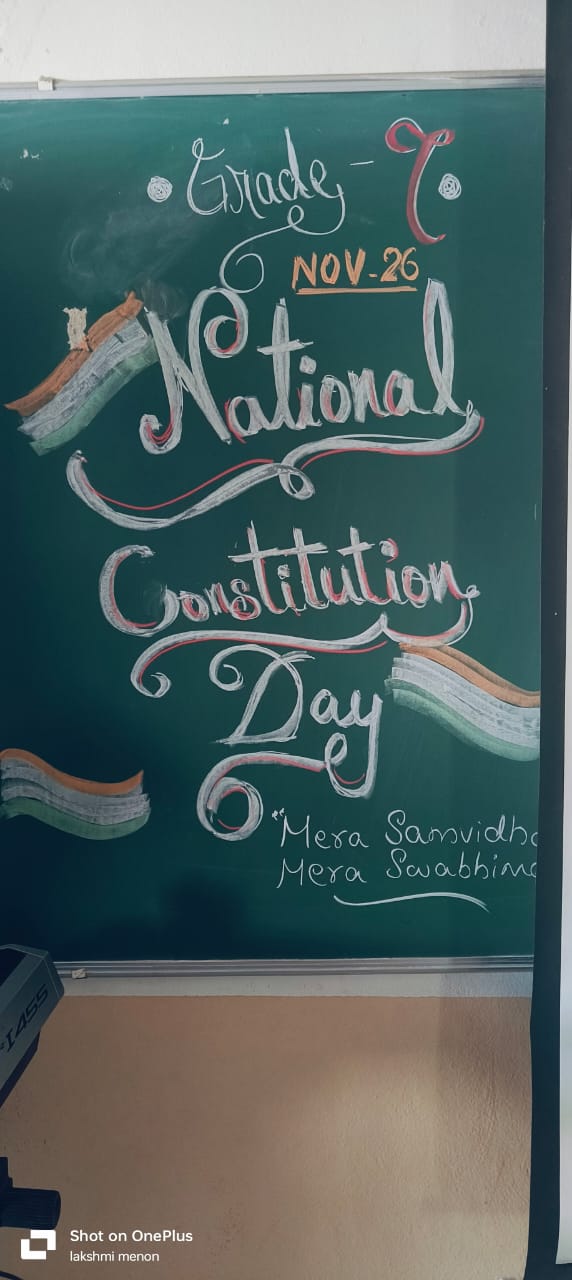 Grade - 7
NOV-26
National
Constitution
Day
"Mera Samvidh
Mera Swabhim
I455
Shot on OnePlus
lakshmi menon